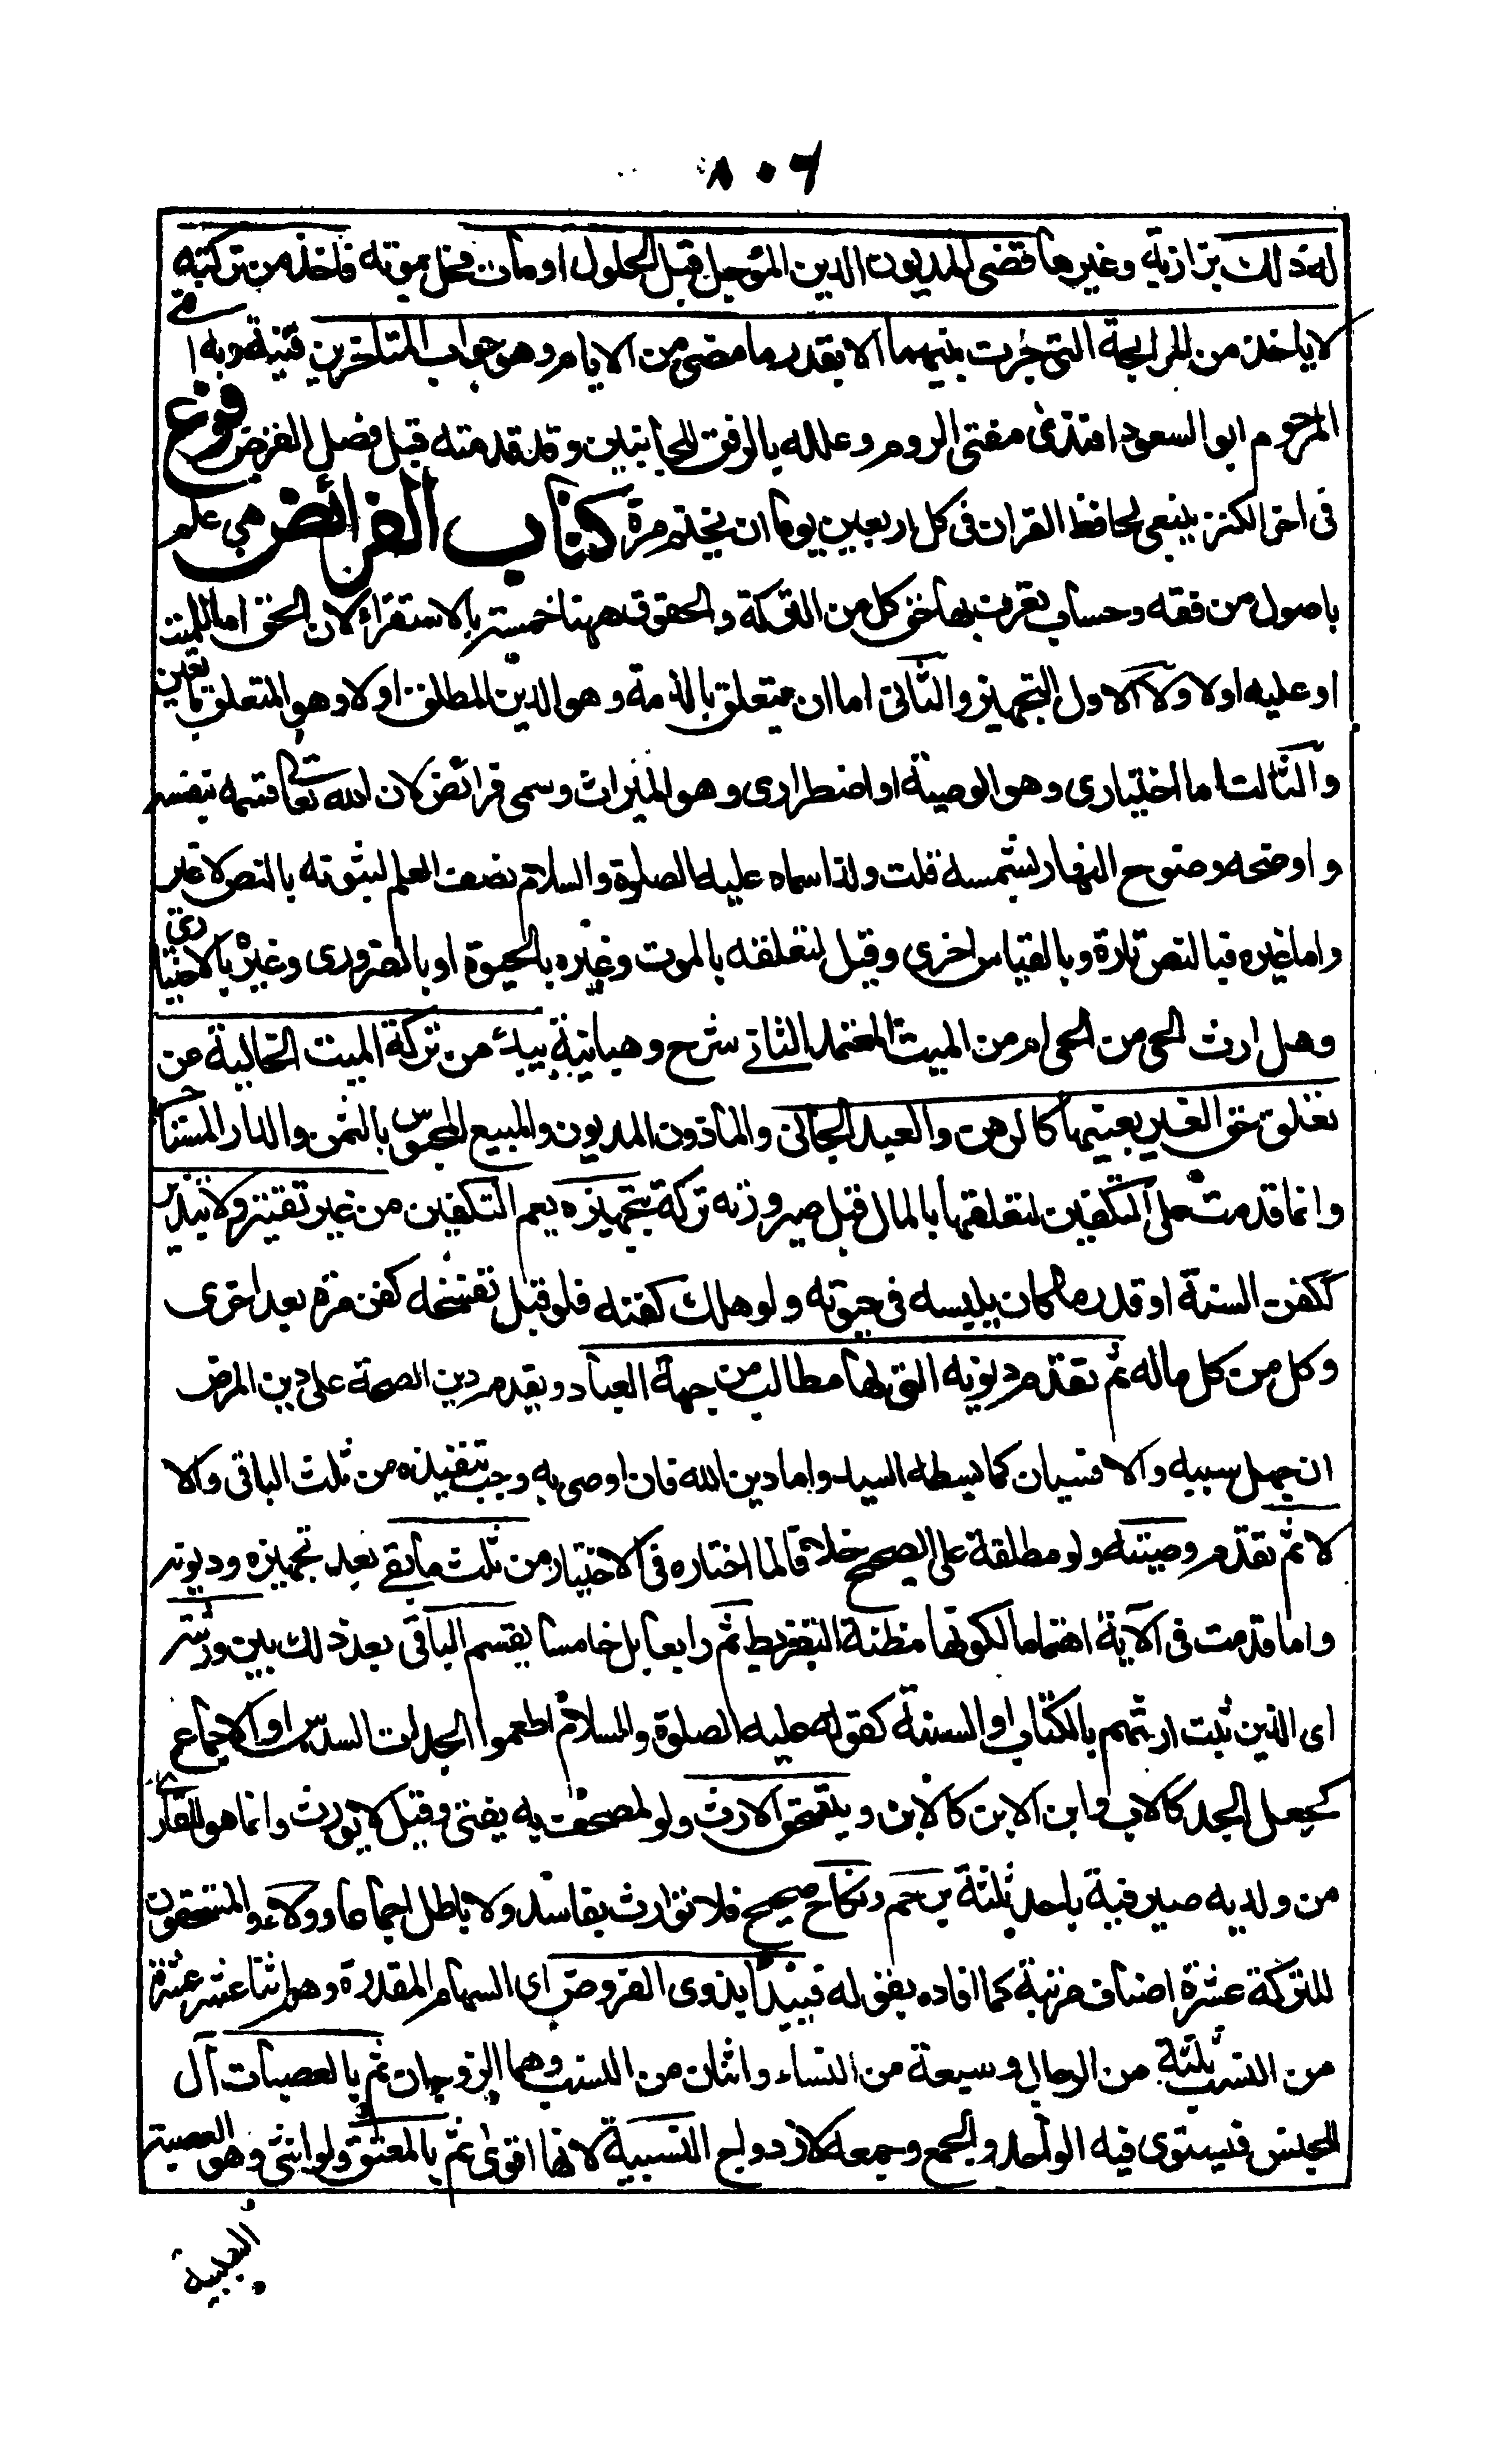 ٨٠٦
له ذلك بزازية وغيرها قضى المديون الدين المؤجل قبل الحلول او مات فحل بموته فاخذ من تركته
لا ياخذ من المرابحة التي جرت بينهما الا بقدر ما مضى من الايام وهو جواب المتاخرين قنية وبه افتى
المرحوم ابو السعود افندى مفتى الروم وعلله بالرفق للجانبين وقد قدمته قبل فصل القرض فروع
فى اخر الكنز ينبغى لحافظ القران فى كل اربعين يوما ان يختم مرة كتاب الفرائض هي علم
باصول من فقه وحساب تعرف بها حق كل من التركة والحقوق ههنا خمسة بالاستقراء لان الحق اما للميت
او عليه اولا ولا الاول التجهيز والثانى اما ان يتعلق بالذمة وهو الدين المطلق اولا وهو المتعلق بالعين
والثالث اما اختيارى وهو الوصية او اضطرارى وهو الميراث وسمى فرائض لان الله تعالى قسمه بنفسه
واوضحه وضوح النهار بشمسه قلت ولذا سماه عليه الصلوة والسلام نصف العلم لثبوته بالنص لا غير
واما غيره فبالنص تارة وبالقياس اخرى وقيل لتعلقه بالموت وغيره بالحيوة او بالضرورى وغيره بالاختيارى
وهل ارث الحى من الحى ام من الميت المعتمد الثانى شرح وهبانية يبدء من تركة الميت الخالية عن
تعلق حق الغير بعينها كالرهن والعبد الجانى والمأذون المديون والمبيع المحبوس بالثمن والدار المستاجرة
وانما قدمت على التكفين لتعلقها بالمال قبل صيرورته تركة بتجهيزه يعم التكفين من غير تقتير ولا تبذير
ككفن السنة او قدر ما كان يلبسه فى حيوته ولو هلك كفنه فلو قبل تفسخه كفن مرة بعد اخرى
وكل من كل ماله ثم تقدم ديونه التى لها مطالب من جهة العباد ويقدم دين الصحة على دين المرض
ان جهل سببه والا فسيان كما بسطه السيد واما دين الله فان اوصى به وجب تنفيذه من ثلث الباقى والا
لا ثم تقدم وصيته ولو مطلقة على الصحيح خلافا لما اختاره فى الاختيار من ثلث ما بقى بعد تجهيزه وديونه
واما قدمت فى الآية اهتماما لكونها مظنة التفريط ثم رابعا بل خامسا يقسم الباقى بعد ذلك بين ورثته
اى الذين ثبت ارثهم بالكتاب او السنة كقوله عليه الصلوة والسلام اطعموا الجدات السدس او الاجماع
كجعل الجد كالاب وابن الابن كالابن ويستحق الارث ولو لمصحف به يفتى وقيل لا يورث وانما هو للقارى
من ولديه صيرفية باحد ثلثة برحم ونكاح صحيح فلا توارث بفاسد ولا باطل اجماعا وولاء والمستحقون
للتركة عشرة اصناف مرتبة كما افاده بقوله فيبدأ بذوى الفروض اى السهام المقدرة وهم اثنا عشر عشرة
من النسب ثلثة من الرجال وسبعة من النساء واثنان من السبب وهما الزوجان ثم بالعصبات آل
للجنس فيستوى فيه الواحد والجمع وجمعه لازدواج النسبية لانها اقوى ثم بالمعتق ولو انثى وهو العصبة
السببية